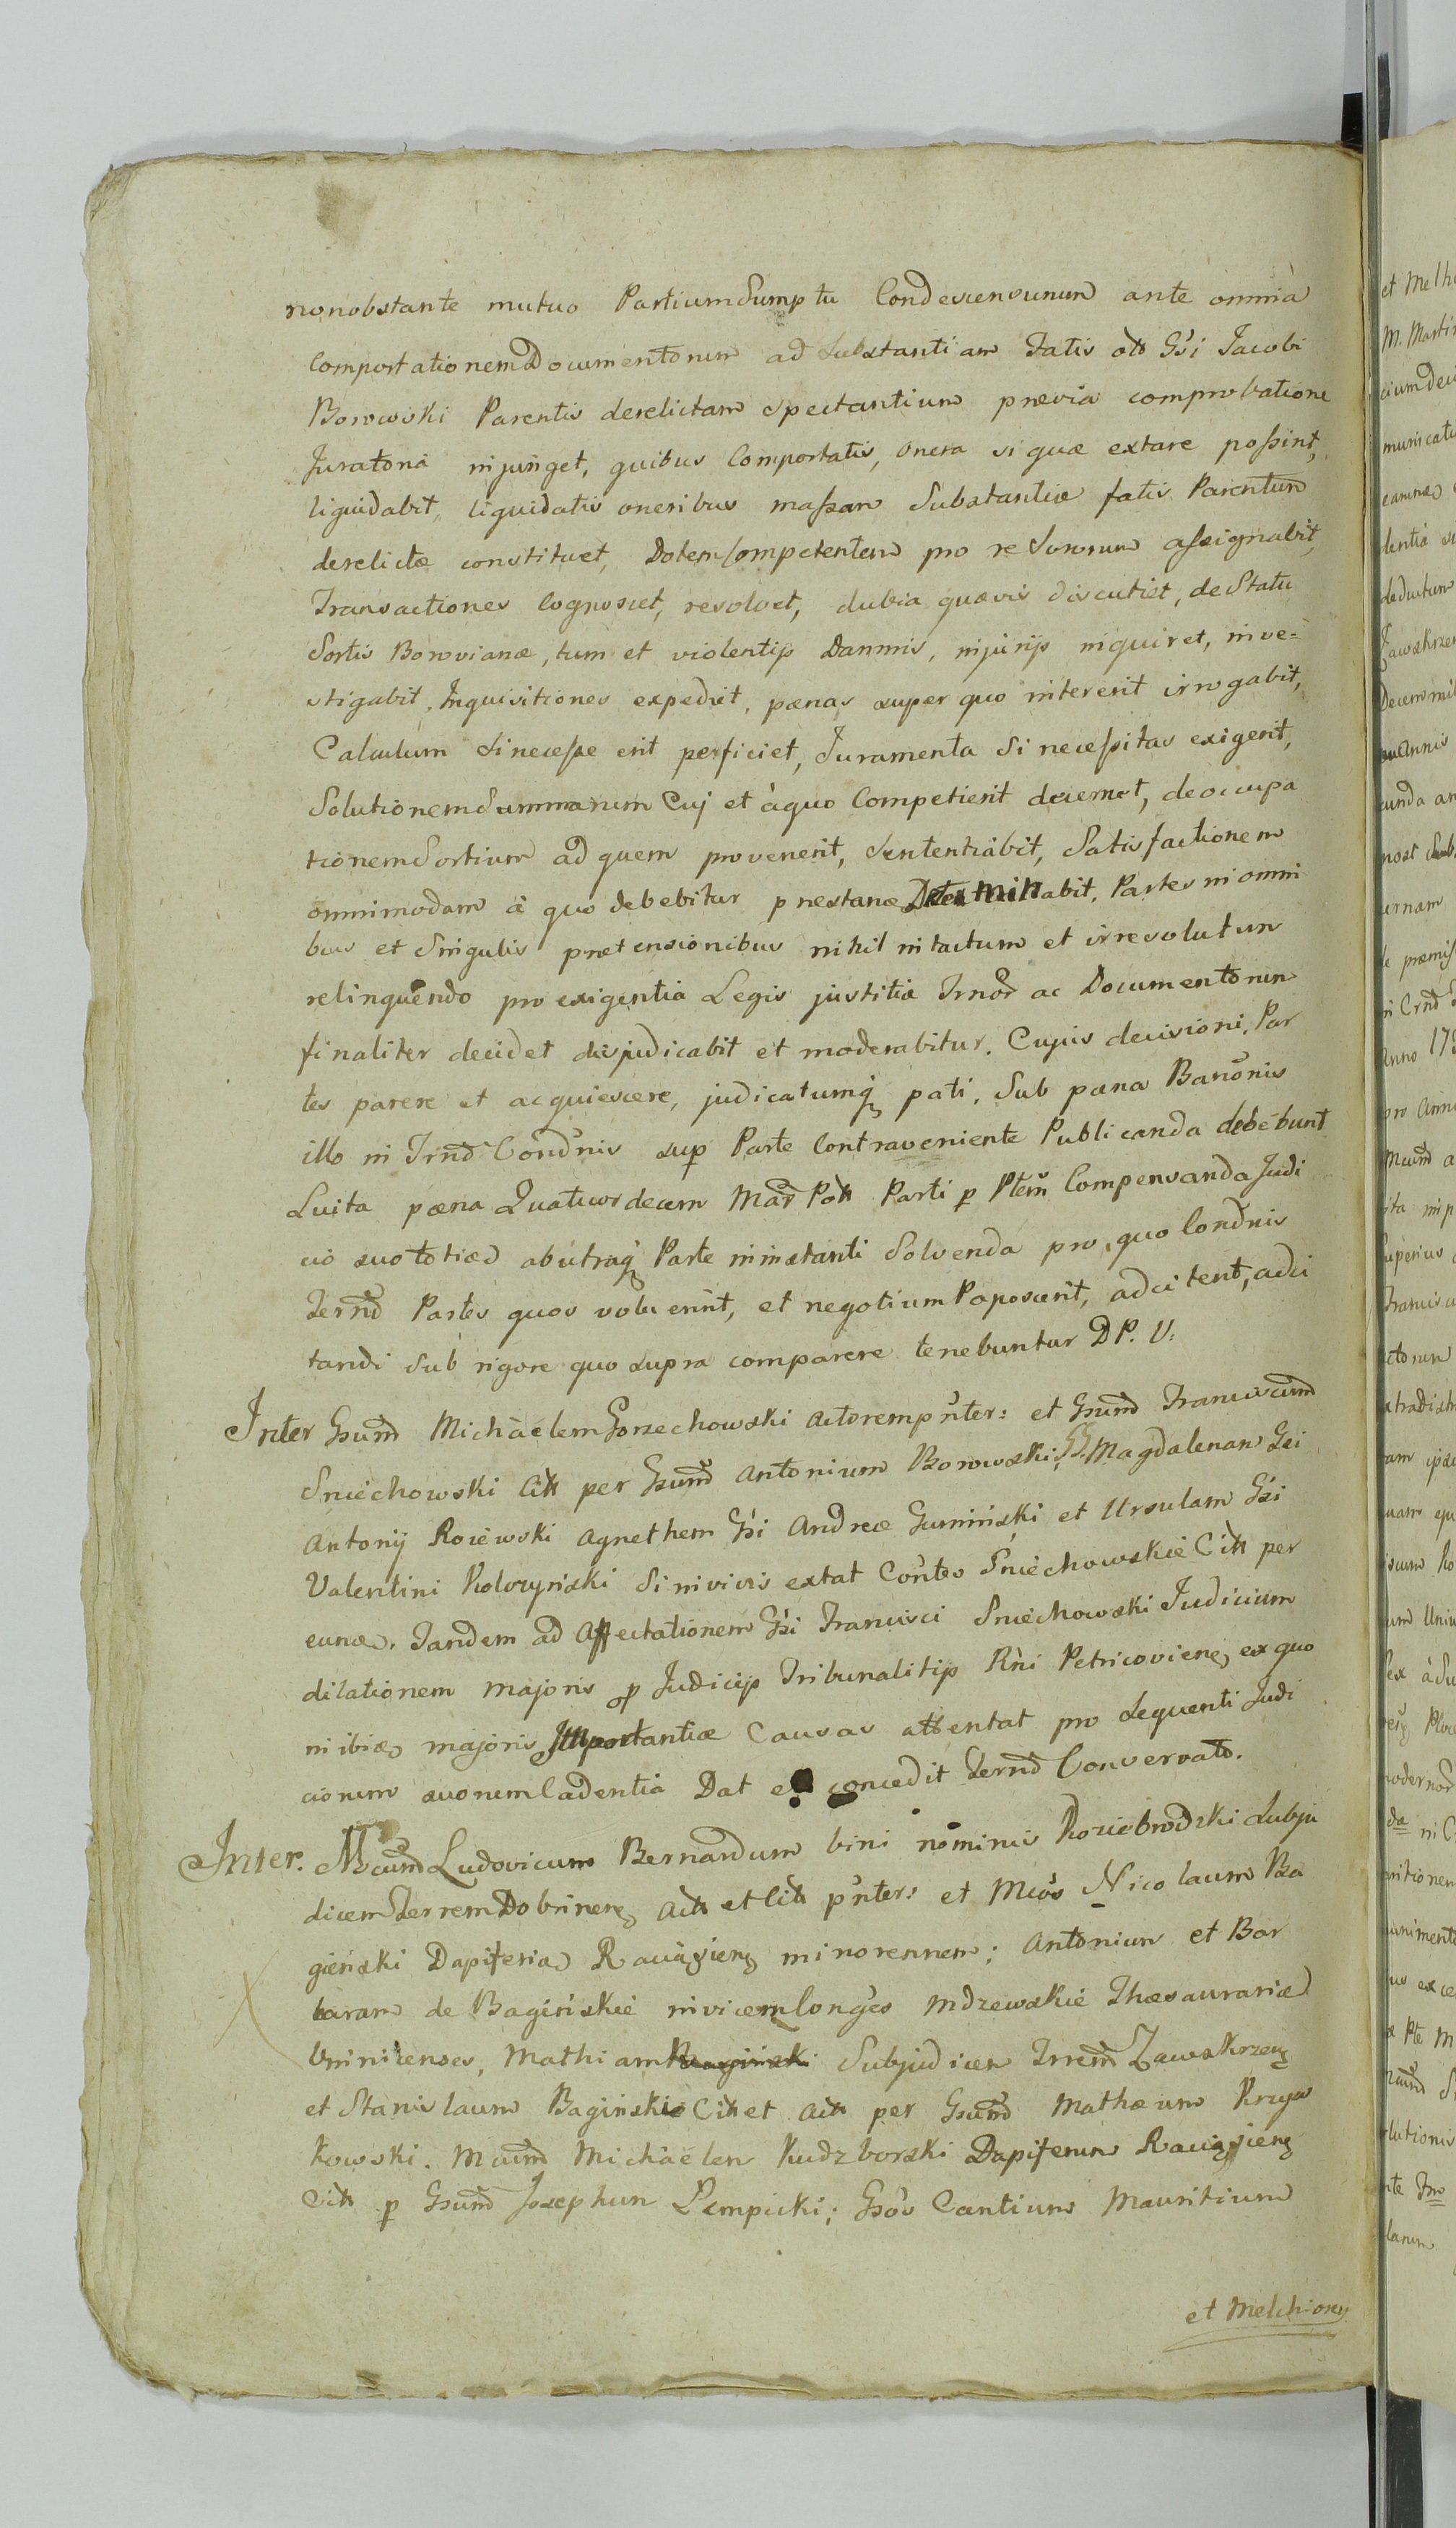 nonobstante mutuo Partium Sumptu Condescensurum ante omnia
Comportationem Documentorum ad Substantiam Fatis olo Gsi Jacobi
Borowski Parentis derelictam spectantium prævia comprobatione
Juratoria injunget, quibus Comportatis, onera si quæ extare possint,
liquidabit, liquidatis oneribus massam Substantiæ fatis Parentum
derelictæ constituet, Dotem Competentem pro re Sororum assignabit,
Transactiones Cognoscet, resolvet, dubia quævis discutiet, de Statu
Sortis Borovianæ, tum et violentijs Damnis, injurijs inquiret, inve=
stigabit, Inquisitiones expediet, pænas super quo intererit irrogabit,
Calculum Si necesse erit perficiet, Juramenta Si necessitas exigerit,
Solutionem Summarum Cuj et à quo Competierit decernet, de occupa
tionem Sortium ad quem provenerit, Sententiabit, Satisfactionem
omnimodam à quo debebitur præstare Determinabit, Partes in omni
bus et Singulis prætensionibus nihil intactum et irresolutum
relinquendo pro exigentia Legis justitiæ Trnor ac Documentorum
finaliter decidet disjudicabit et moderabitur. Cujus decisioni, Par
tes parere et acquiescere, judicatumq pati, Sub pæna Banonis
illo in Trnd Condnis sup Parte Contraveniente Publicanda debebunt
Luita pæna Quatuordecem Mar Poll Parti p Ptem Compensanda Judi
cio suo totied ab utraq Parte in instanti Solvenda pro, quo Condnis
Termd Partes quos voluerint, et negotium Poposcerit, adcitent, adci
tandi Sub rigore quo supra comparere tenebuntur D P. V:
Inter Gsumd Michäelem Gorzechowski actorem pnter: et Gsumd Franciscumd
Sniechowski Citt per Gsumd Antonium Borowski, GG. Magdalenam Gsi
Antonij Roiewski Agnethem Gsi Andreæ Guminski et Ursulam Gsi
Valentini Kolczynski Si in vivis extat Contes Sniechowskie Citt per
eund. Tandem ad Affectationem Gsi Francisci Sniechowski Judicium
dilationem majoris p Judicijs Tribunalitijs Rni Petricovien ex quo
in ibid majoris Importantiæ Causas attentat pro Sequenti Judi
ciorum suorum Cadentia Dat et concedit Termd Conservato.
Inter. Mcumd Ludovicum Bernardum bini nominis Koziebrodzki Subju
dicem Terrem Dobrinen Act et Citt pnter: et Mcos Nicolaum Ba
gienski Dapiferid Ravaviens minorennem; Antonium et Bar
baram de Bagienskie in vicem Conges Mdzewskie Thesaurarid
Srinicenses, Mathiam Subjudicem Trrem Zawskrzen
et Stanislaum Baginskie Citt et Act per Gsumd Mathæum Krzys
kowski. Mcumd Michäelem Kudzborski Dapiferum Ravavien
Citt p Gsumd Josephum Pempicki; Gsos Cantium Mauritium
et Melchiorem